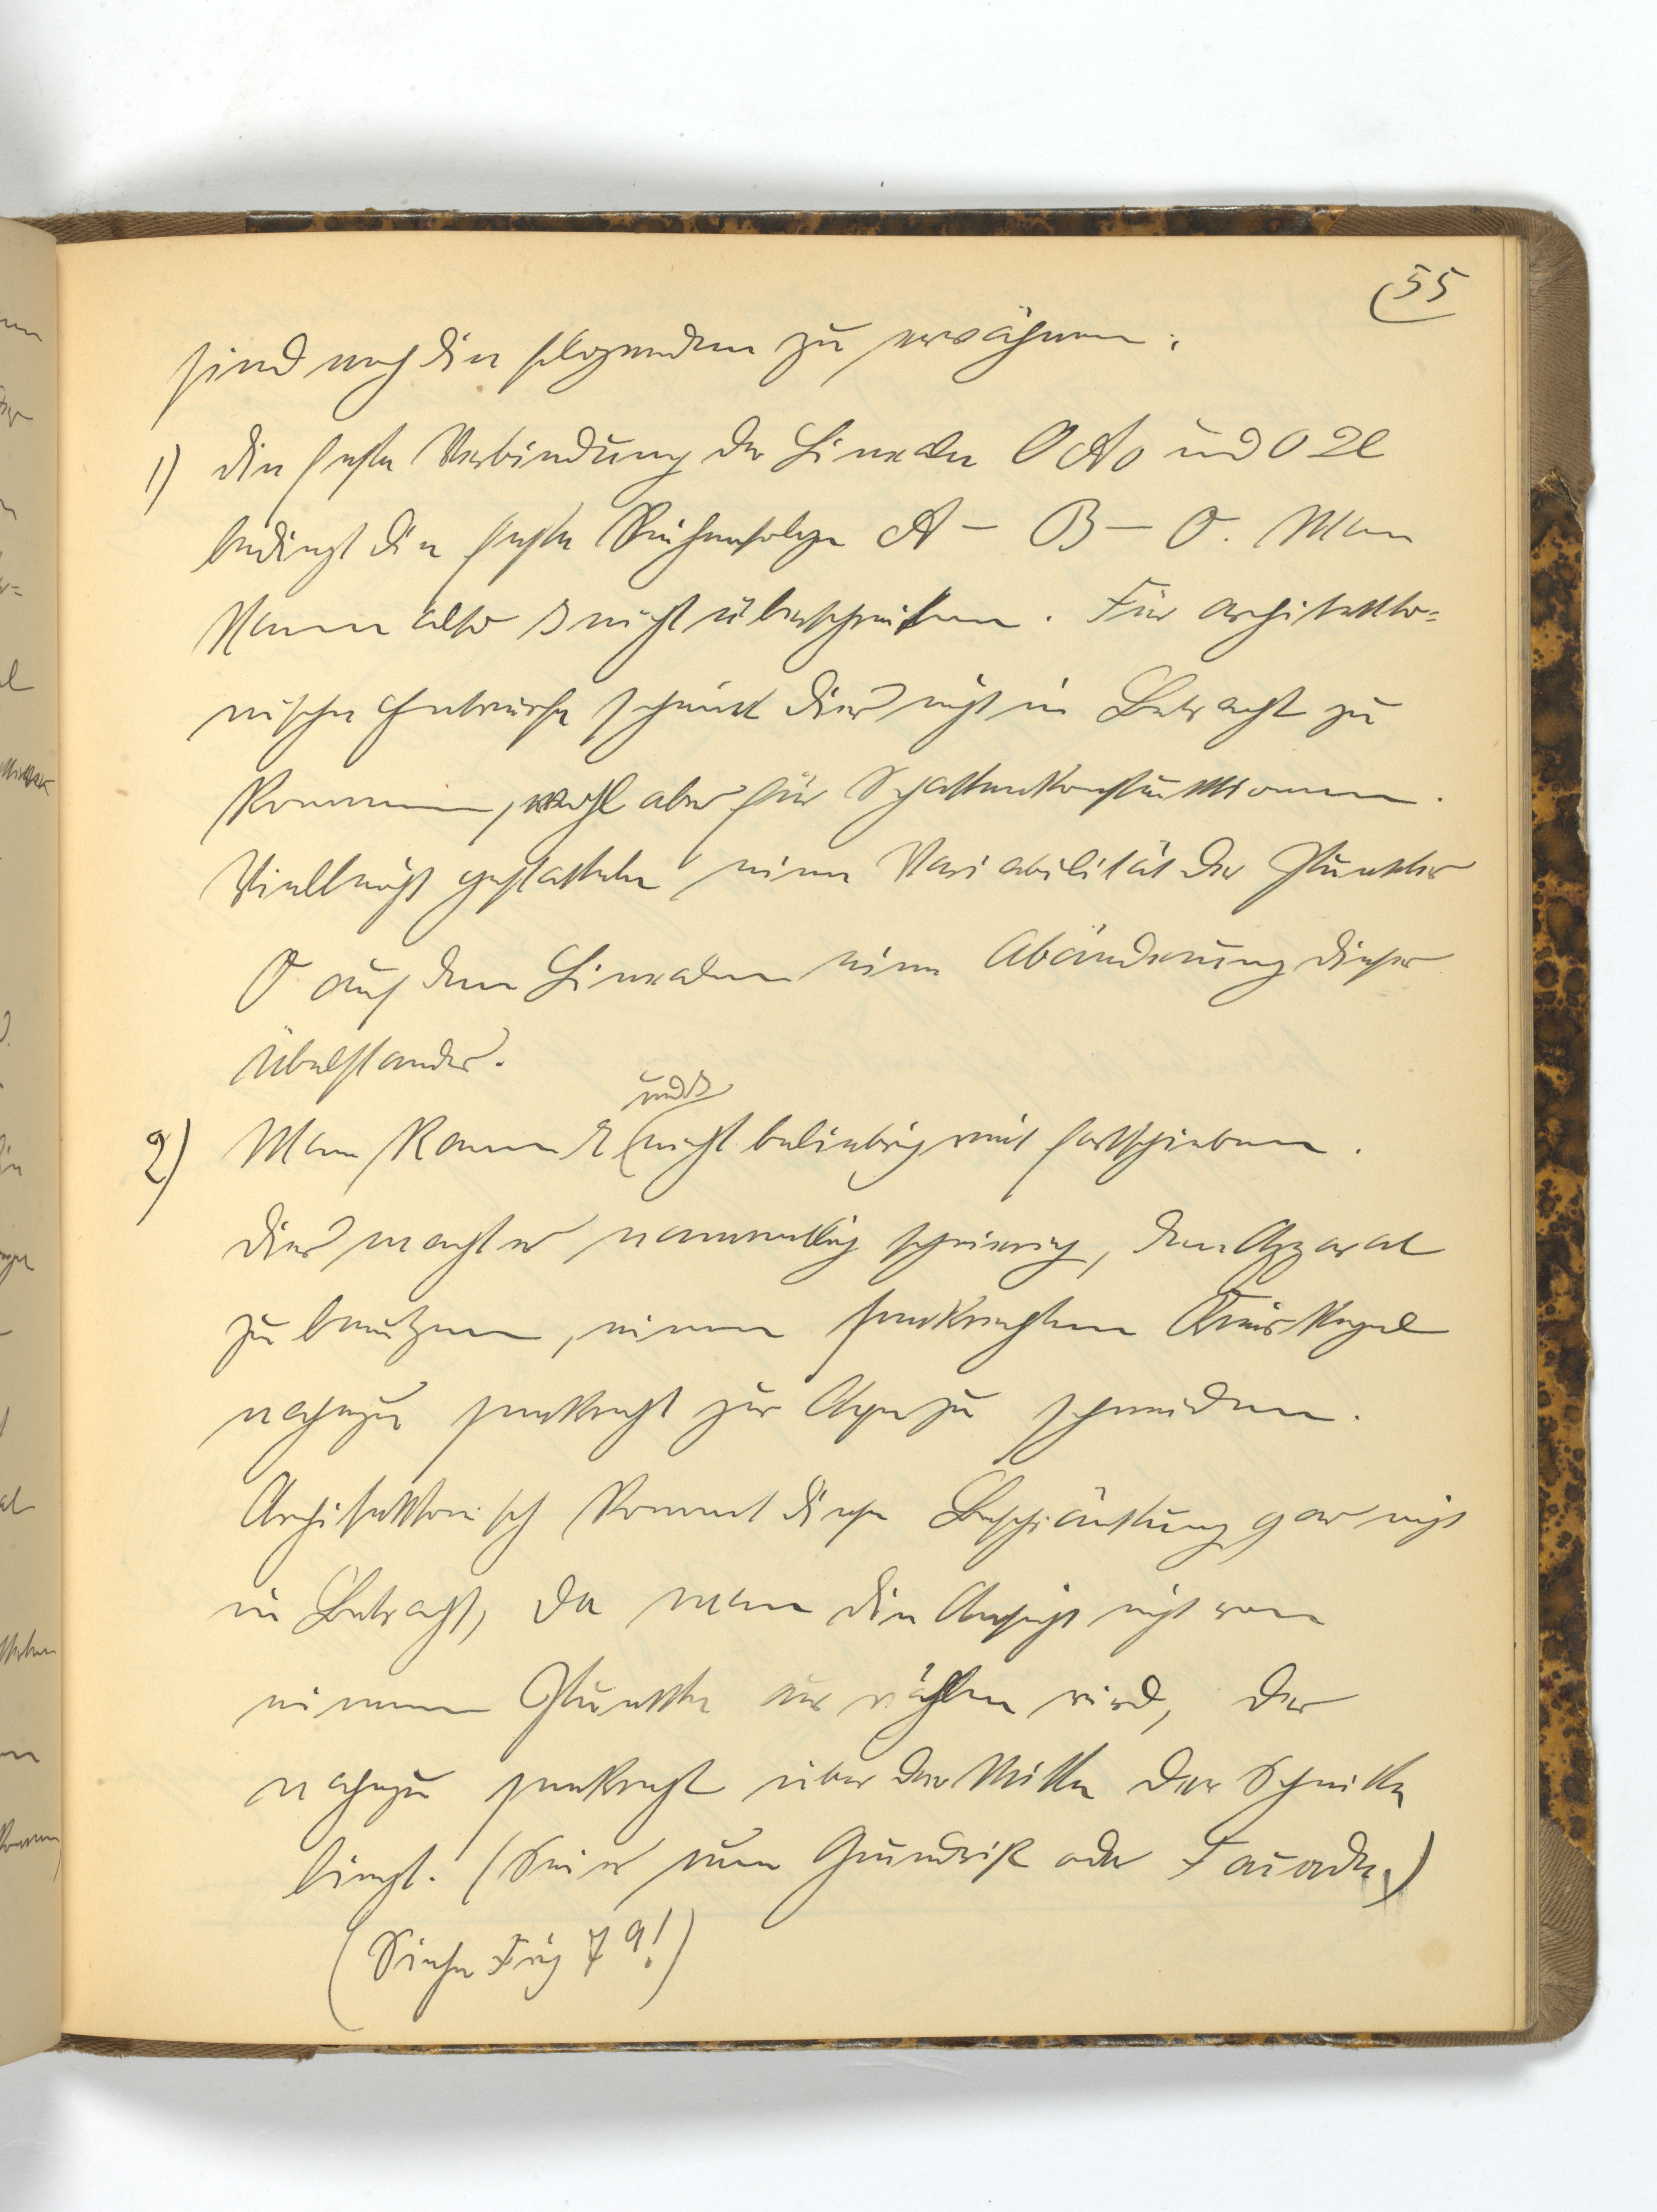 55
sind noch die folgenden zu erwähnen:
1) die feste Verbindung der Lineale O A0 und O
bedingt die feste Reihenfolge A – B – O. Man
kann also nicht überschreiten. Für architekto=
nische Entwürfe scheint dies nicht in Betracht zu
kommen, wohl aber für Schattenkonstruktionen.
Vielleicht gestattete eine Variabilität der Punkte
O auf den Linealen eine Abänderung dieses
Übelstandes.
und
2) Man kann nicht beliebig weit fortschieben.
Dies macht es namentlich schwierig, den Apparat
zu benutzen, einen senkrechten Kreiskegel
nahezu senkrecht zur Axe zu schneiden.
Architektonisch kommt diese Beschränkung gar nicht
in Betracht, da man die Ansicht nicht von
einem Punkte aus wählen wird, der
nahezu senkrecht über der Mitte der Schnitte
liegt. (Sei es nun Grundriß oder Facade.)
(Siehe Fig 79!)